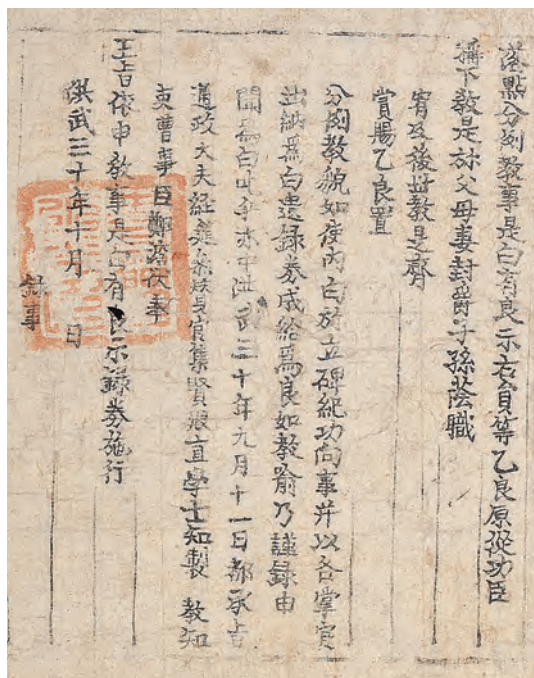 落點分例敎事是白有良尔右員等乙良原從功臣
稱下敎是旀父母妻封爵子孫蔭職
宥及後世敎是齊
賞賜乙良置
分例敎貌如使內白旀立碑紀功向事幷以各掌官
出納爲白遣錄券成給爲良如敎兪乃謹錄申
聞爲白 亦中洪武三十年九月十一日都承旨
通政大夫經筵 官集賢殿直學士知製 敎知
吏曹事臣鄭 次奉
王旨依申敎事是白有良尔錄券施行
洪武三十年十月 日
錄事